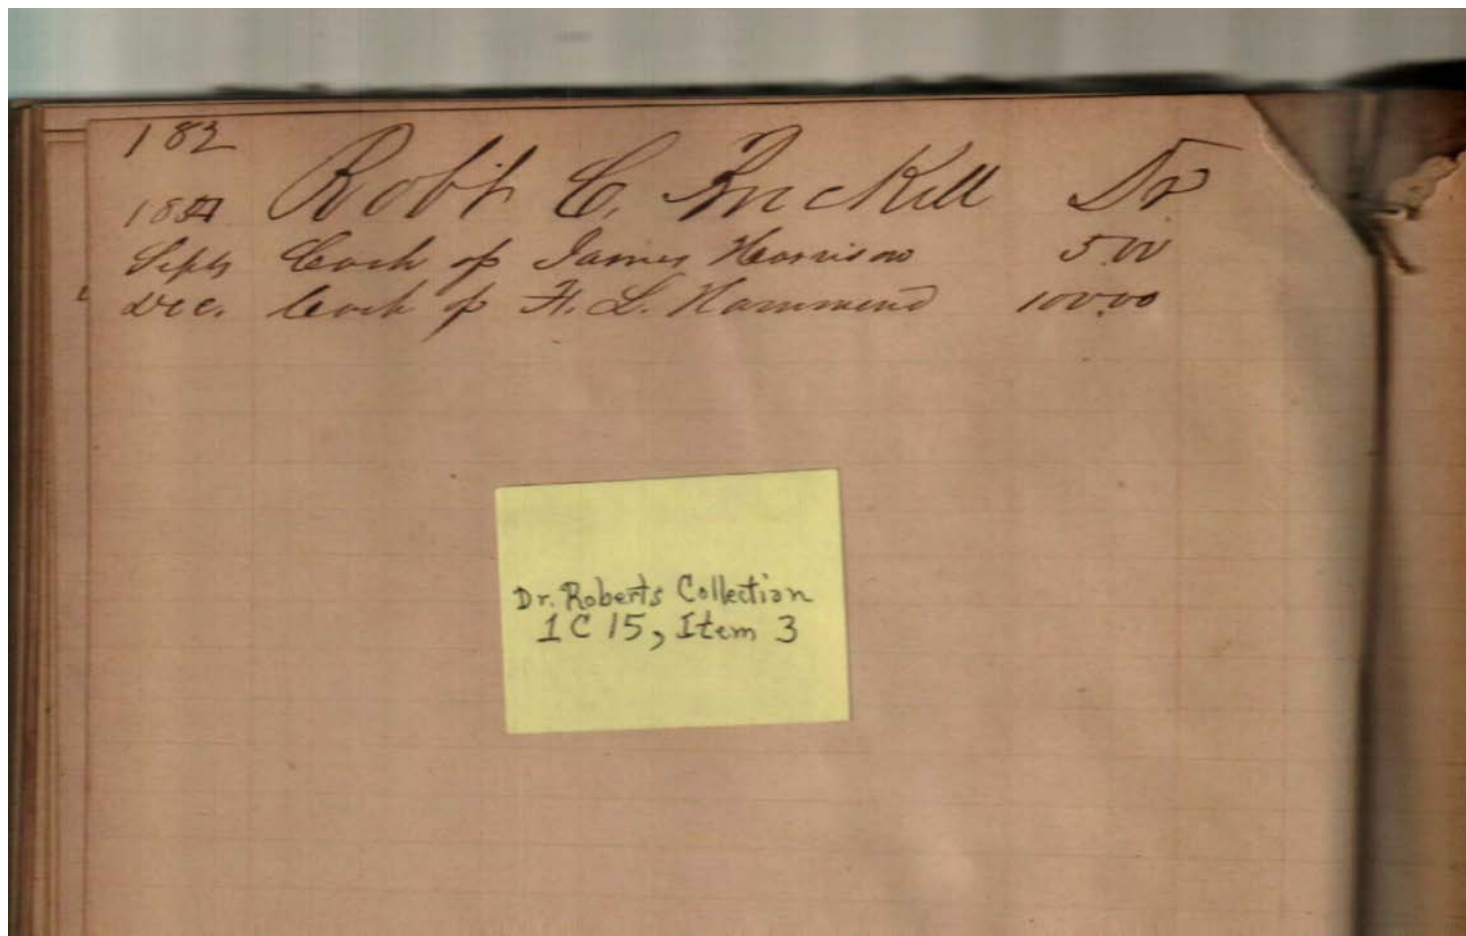 182
Robt C. McKell Dr
Sept Cash of James Harrison 5.00
Dec. Cash of H. L. Hammond 100.00
Dr. Roberts Collection
1 C 15, Item 3